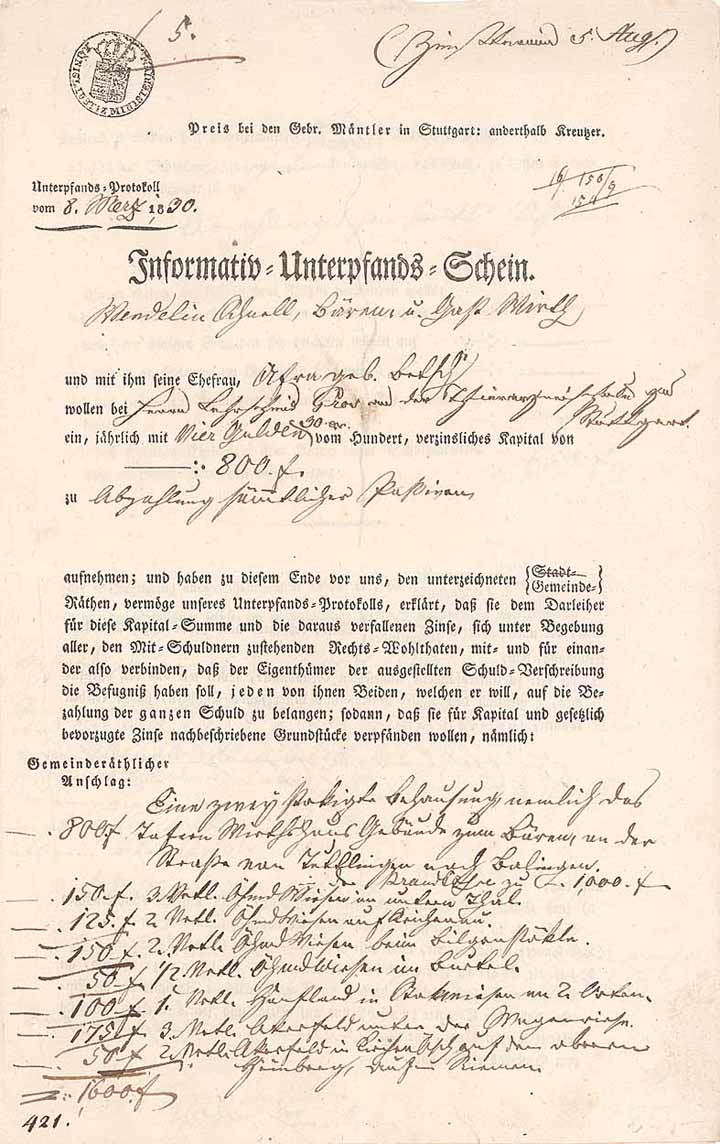 5.
5. Aug.
Preis bei den Gebr. Mäntler in Stuttgart: anderthalb Kreutzer.
Unterpfands-Protokoll
vom 8. Merz 1830.
Informativ-Unterpfands-Schein.
Wendelin Schnell, Bären u. Gast Wirth
und mit ihm seine Ehefrau, Afra geb. Betsch
wollen bei Herrn an der Thierarzneischule zu
Stuttgart
ein, jährlich mit Vier Gulden 30 xr. vom Hundert, verzinsliches Kapital von
800. f.
zu Abzahlung sämtlicher Passiven
aufnehmen; und haben zu diesem Ende vor uns, den unterzeichneten {Stadt-
Gemeinde-}
Räthen, vermöge unseres Unterpfands-Protokolls, erklärt, daß sie dem Darleiher
für diese Kapital-Summe und die daraus verfallenen Zinse, sich unter Begebung
aller, den Mit-Schuldnern zustehenden Rechts-Wohlthaten, mit- und für einan-
der also verbinden, daß der Eigenthümer der ausgestellten Schuld-Verschreibung
die Befugniß haben soll, jeden von ihnen Beiden, welchen er will, auf die Be-
zahlung der ganzen Schuld zu belangen; sodann, daß sie für Kapital und gesetzlich
bevorzugte Zinse nachbeschriebene Grundstücke verpfänden wollen, nämlich:
Gemeinderäthlicher
Anschlag:
Eine zweystokigte Behausung nemlich das
800 f Tafern Wirthshaus Gebäude zum Bären, an der
Straße von Tuttlingen nach Balingen.
zu 1,000. f
150. f. 3. Vrtl. Öhmd Wiesen im untern Thal.
125. f 2. Vrtl. Öhmd Wiesen auf
150 f. 2. Vrtl. Öhmd Wiesen beim
50 f. 1/2 Vrtl. Öhmdwiesen im
100 f. 1. Vrtl. Hanfland in an 2. Orten.
175 f 3. Vrtl. Akerfeld unter der
50 f 2. Vrtl. Akerfeld in auf dem oberen
1600 f
421.